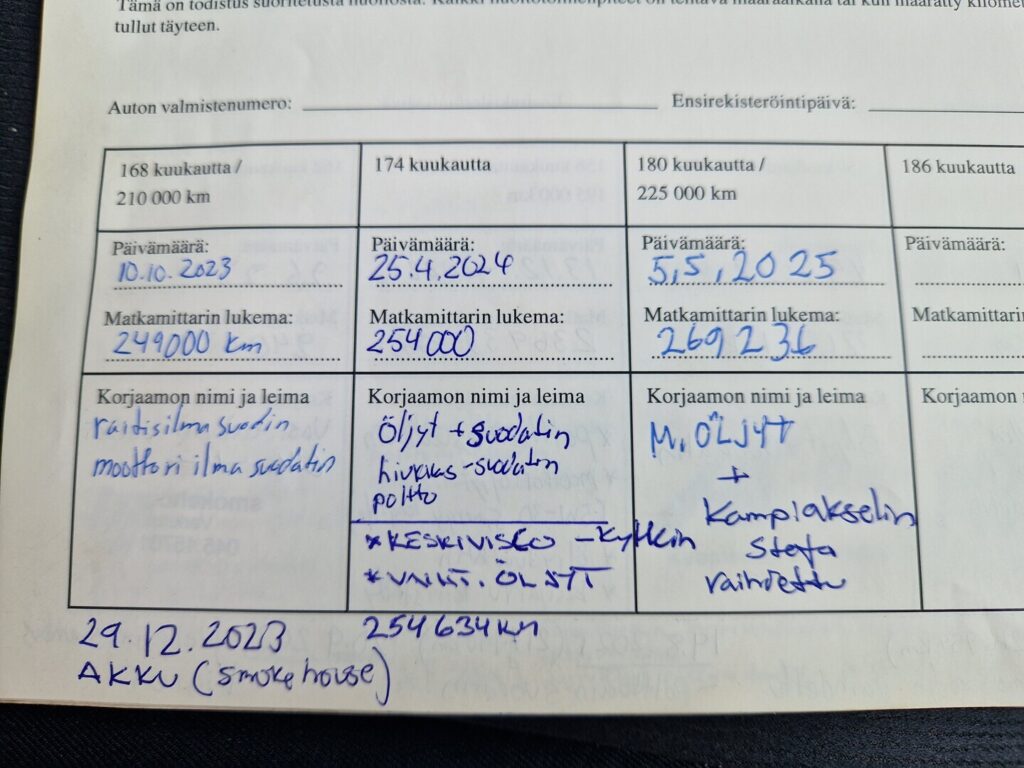 Tämä on todistus suoritetusta huollosta. Kaikki huoltotoimenpiteet on tehtävä määräaikana tai kun määrätty
tullut täyteen.
Auton valmistenumero:
Ensirekisteröintipäivä:
168 kuukautta /
210 000 km
174 kuukautta
180 kuukautta /
225 000 km
186 kuukautta
Päivämäärä:
10.10.2023
Päivämäärä:
25.4.2024
Päivämäärä:
5,5,2025
Päivämäärä:
Matkamittarin lukema:
249000 km
Matkamittarin lukema:
254000
Matkamittarin lukema:
269236
Matkamittarin
Korjaamon nimi ja leima
raitisilma suodin
moottori ilma suodatin
Korjaamon nimi ja leima
Öljyt + suodatin
hiukkas-suodatin
poltto
*KESKIVISCO -kytkin
*VAIHT. ÖLJYT
254634KM
Korjaamon nimi ja leima
M. ÖLJYT
+
Kampiakselin
stefa
vaihdettu
29.12.2023
AKKU (smokehouse)